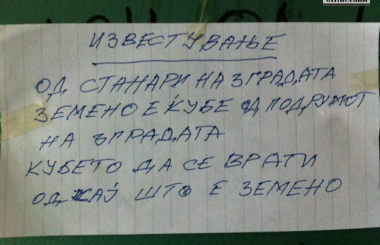 ИЗВЕСТУВАЊЕ
ОД СТАНАРИ НА ЗГРАДАТА
ЗЕМЕНО Е ЌУБЕ ОД ПОДРУМОТ
НА ЗГРАДАТА
ЌУБЕТО ДА СЕ ВРАТИ
ОД КАЈ ШТО Е ЗЕМЕНО